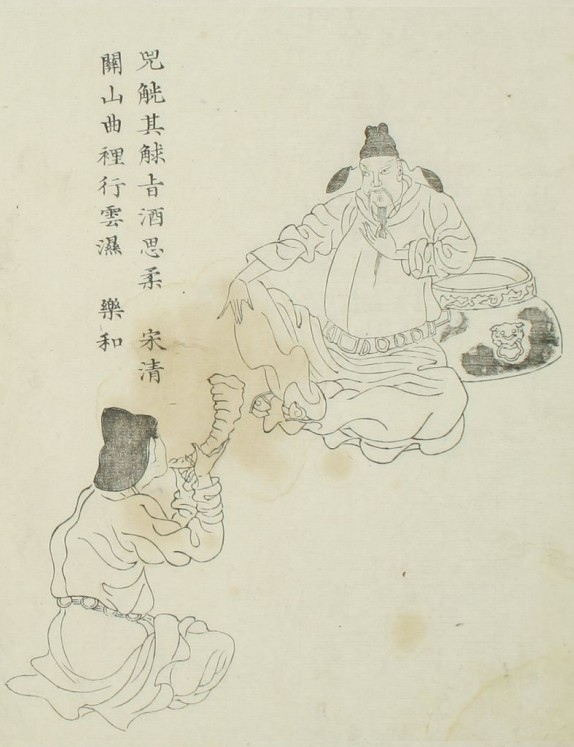 兕觥其觩旨酒思柔　宋清
關山曲裡行雲濕　樂和